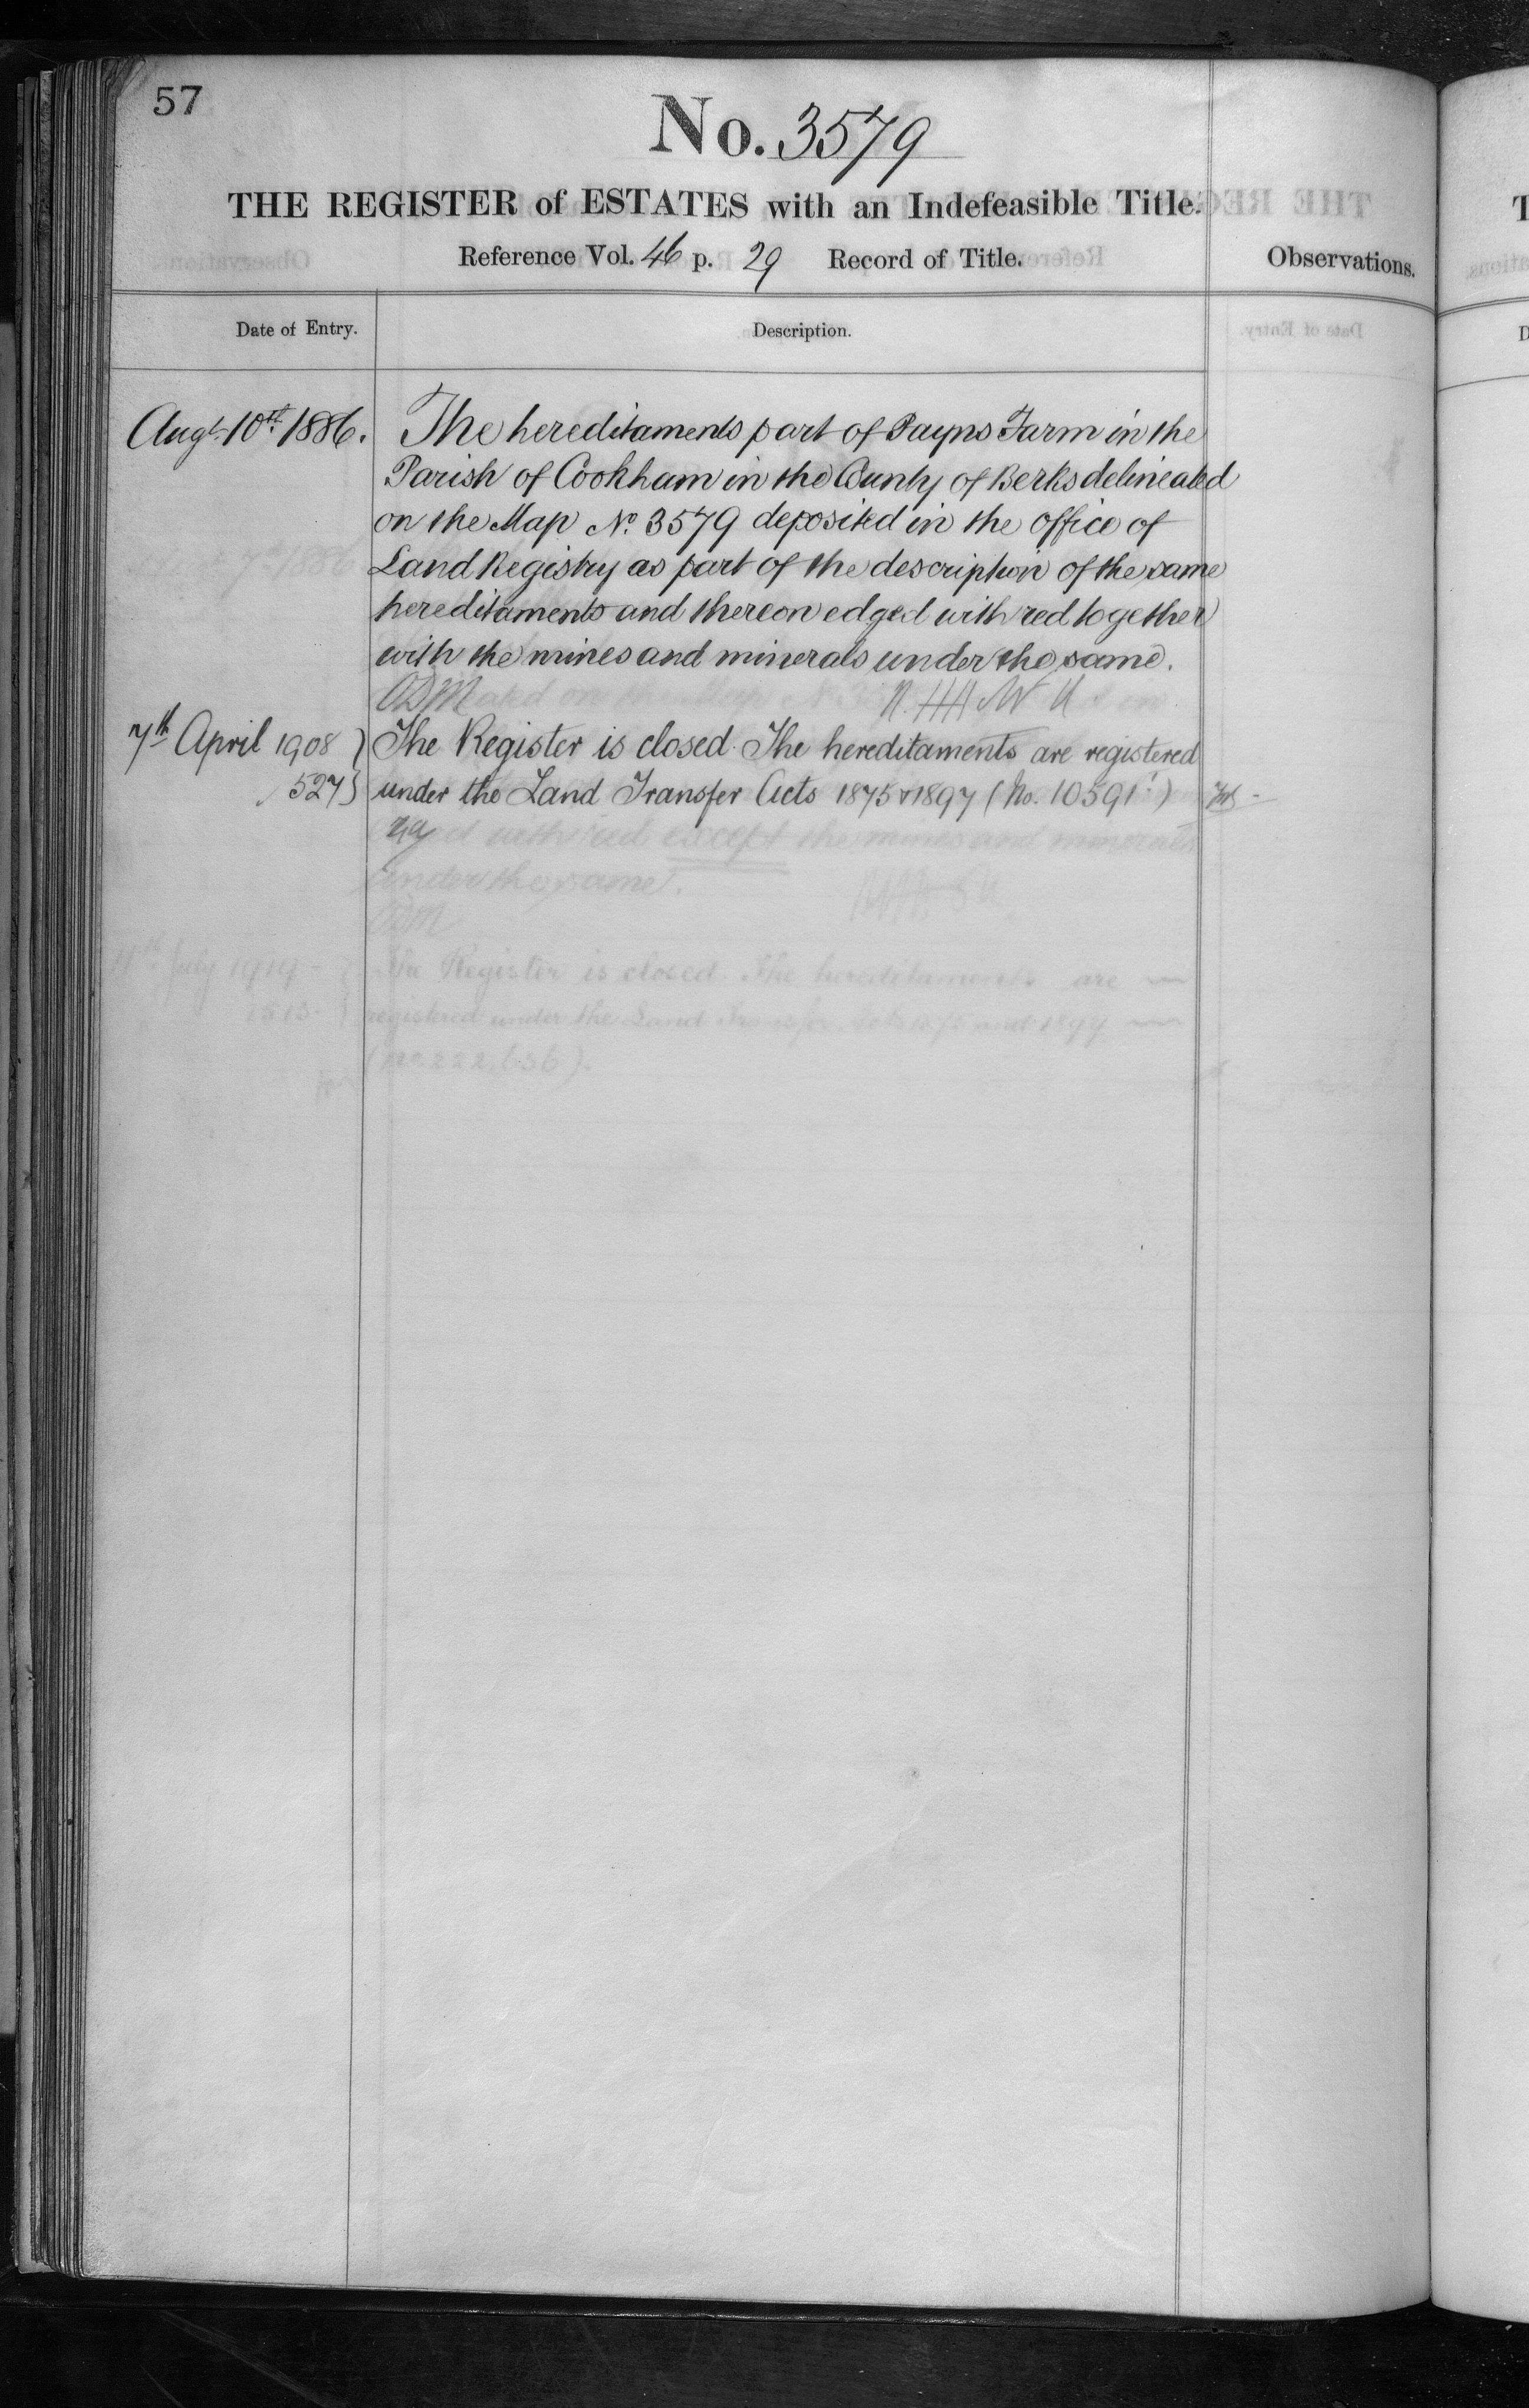 57
No. 3579
THE REGISTER of ESTATES with an Indefeasible Title.
Reference Vol. 46 p. 29 Record of Title.
Observations.
Date of Entry.
Description.
Augt. 10th 1886. The hereditaments part of Payns Farm in the
Parish of Cookham in the County of Berks delineated
on the Map No. 3579 deposited in the office of
Land Registry as part of the description of the same
hereditaments and thereon edged with red together
with the mines and minerals under the same.
7th April 1908 } The Register is closed. The hereditaments are registered
527 } under the Land Transfer Acts 1875 & 1897 (No. 10591)